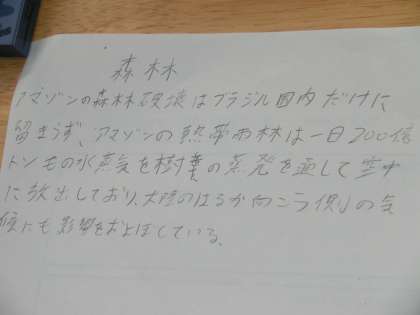 森林
アマゾンの森林破壊はブラジル国内だけに
留まらず、アマゾンの熱帯雨林は一日200億
トンもの水蒸気を樹葉の蒸発を通して空中
に放出しており、大陸のはるか向こう側の気
候にも影響をおよぼしている。